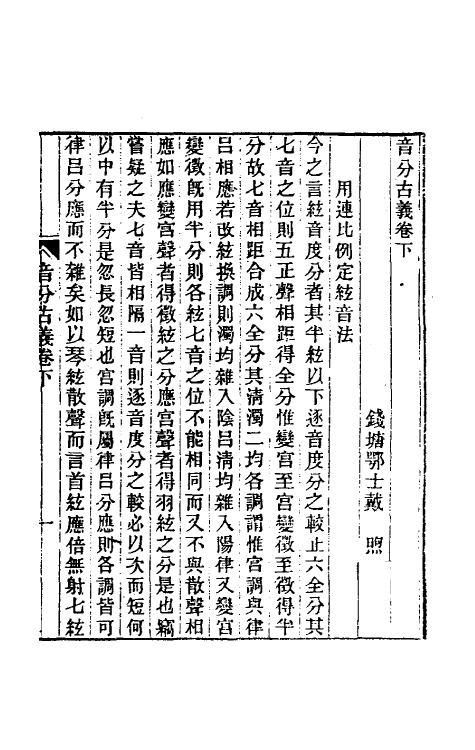 音分古義卷下
錢塘鄂士戴　煦
用連比例定絃音法
今之言絃音度分者其半絃以下逐音度分之較止六全分其
七音之位則五正聲相距得全分惟變宮至宮變徵至徵得半
分故七音相距合成六全分其清濁二均各調謂惟宮調與律
呂相應若改絃換調則濁均雜入陰呂清均雜入陽律又變宮
變徵旣用半分則各絃七音之位不能相同而又不與散聲相
應如應變宮聲者得徵絃之分應宮聲者得羽絃之分是也竊
嘗疑之夫七音皆相隔一音則逐音度分之較必以次而短何
以中有半分是忽長忽短也宮調旣屬律呂分應則各調皆可
律呂分應而不雜矣如以琴絃散聲而言首絃應倍無射七絃
音分古義卷下
一